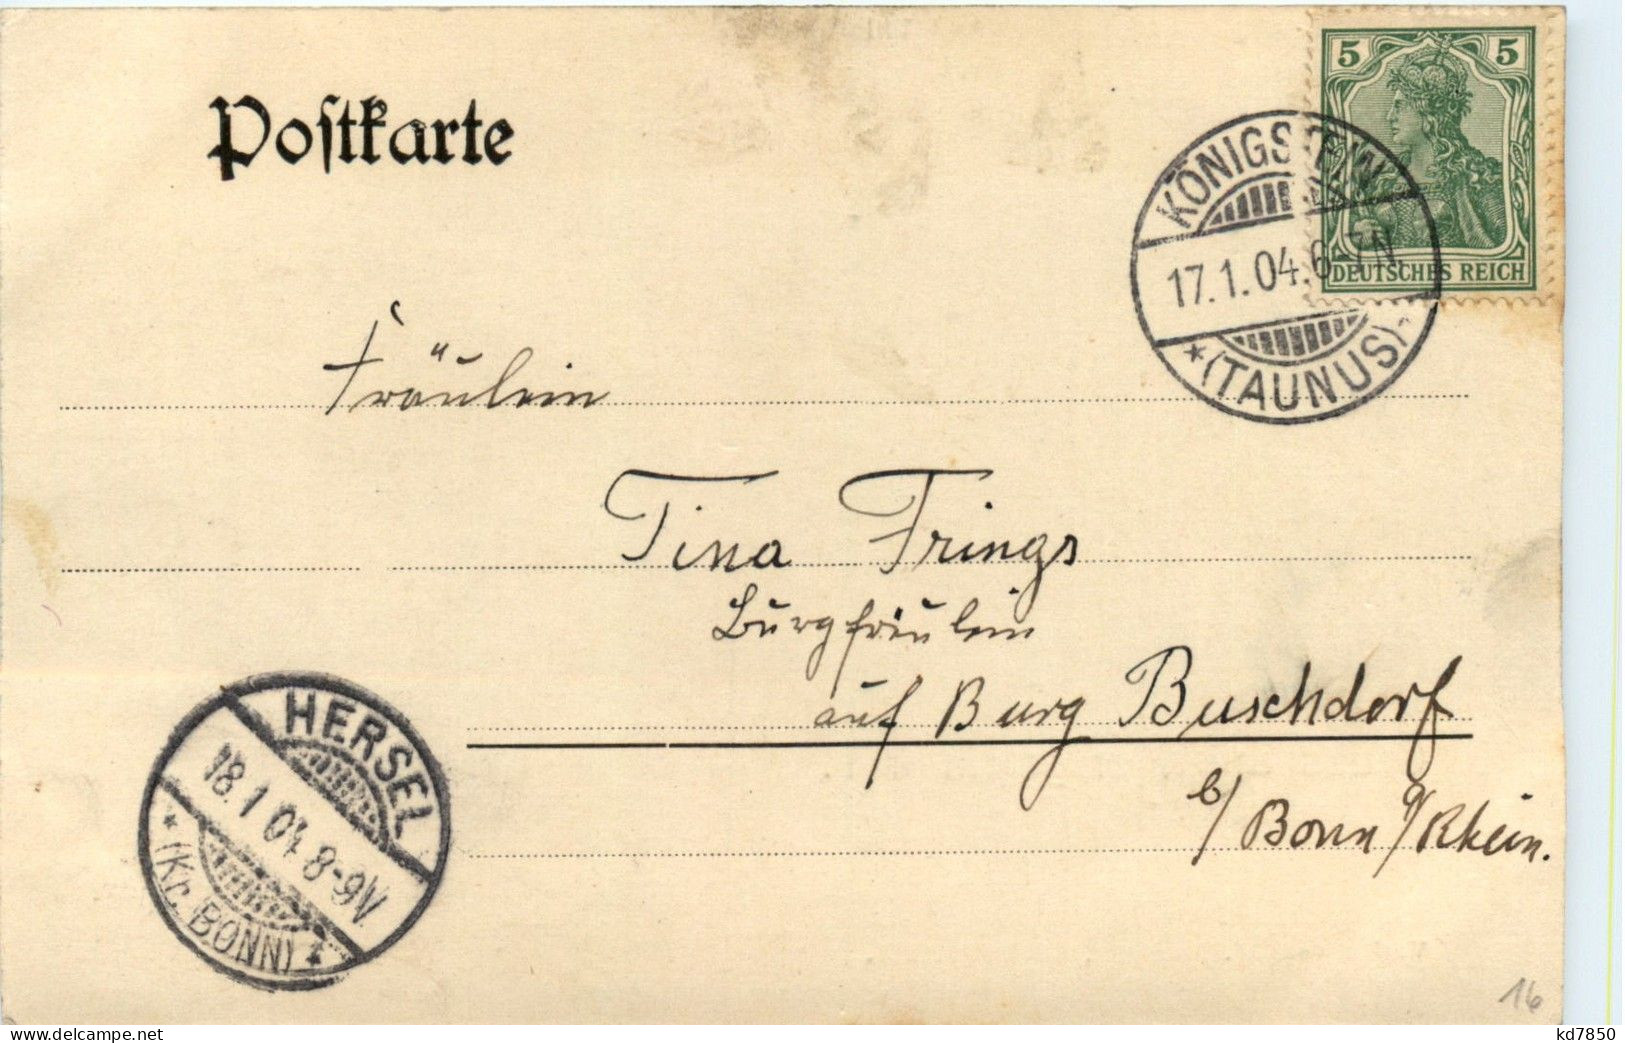 Postkarte
5 5
DEUTSCHES REICH
KÖNIGSTEIN
17.1.04.6-7N.
* (TAUNUS) *
Fräulein
Tina Frings
Burgfräulein
auf Burg Buschdorf
b/ Bonn a/Rhein.
HERSEL
18.1.04 8-9V.
* (Kr. BONN) *
16
kd7850
www.delcampe.net